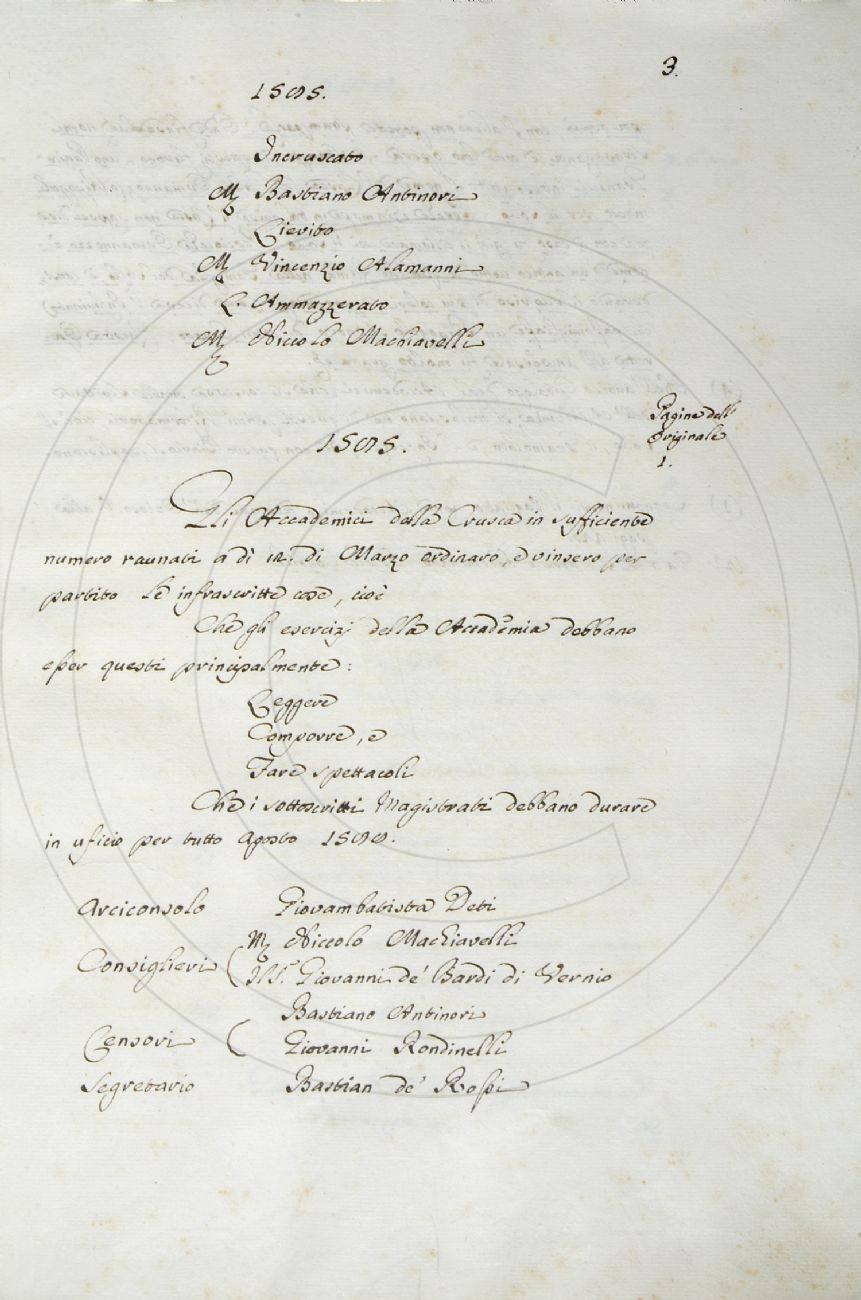 3.
1585.
Incruscato
M. Bastiano Antinori
Lievito
M. Vincenzio Alamanni
L. Ammazzerato
M. Niccolo Machiavelli
Pagine dell'
originale
1.
1585.
Gli Accademici della Crusca in sufficiente
numero raunati a dì 12. di Marzo ordinaro, e vinsero per
partito le infrascritte cose, cioè
Che gli esercizj della Accademia debbano
esser questi principalmente:
Leggere
Comporre, e
Fare spettacoli
Che i sottoscritti Magistrati debbano durare
in uficio per tutto Agosto
Arciconsolo Giovambatista Deti
M. Niccolo Machiavelli
Consiglieri Giovanni de' Bardi di Vernio
Bastiano Antinori
Censori Giovanni Rondinelli
Segretario Bastian de' Rossi